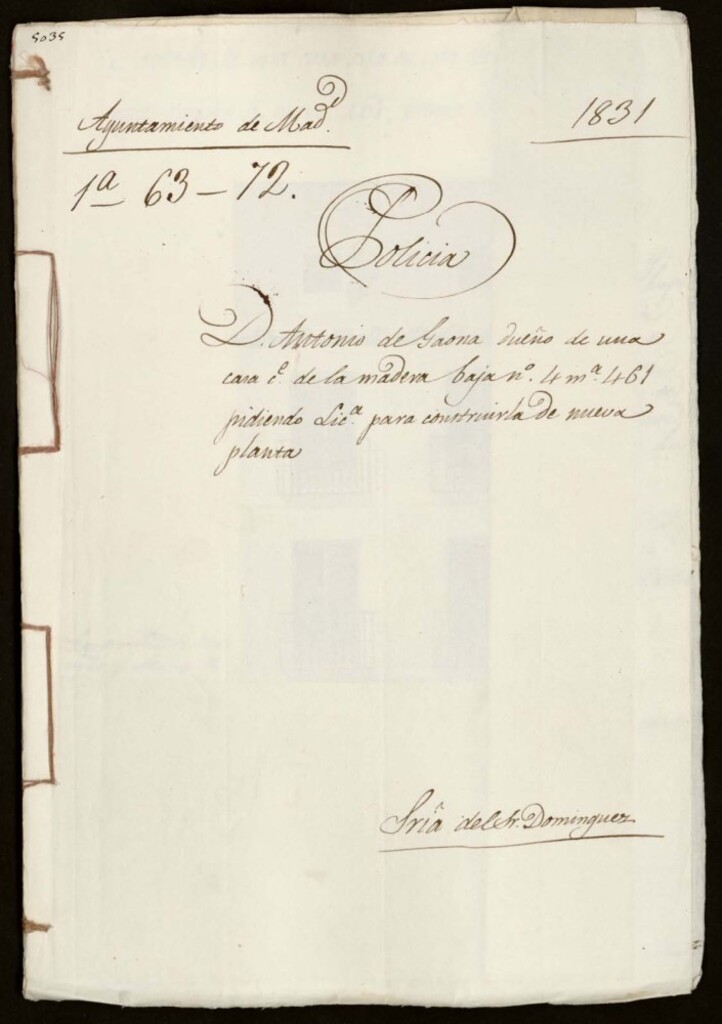 5035
Ayuntamiento de Mad.d
1831
1a 63 - 72.
Policia
D. Antonio de Gaona dueño de una
casa c.e de la madera baja nº. 4 mª. 461
pidiendo Lic.a para construirla de nueva
planta
Sría del Sr. Dominguez